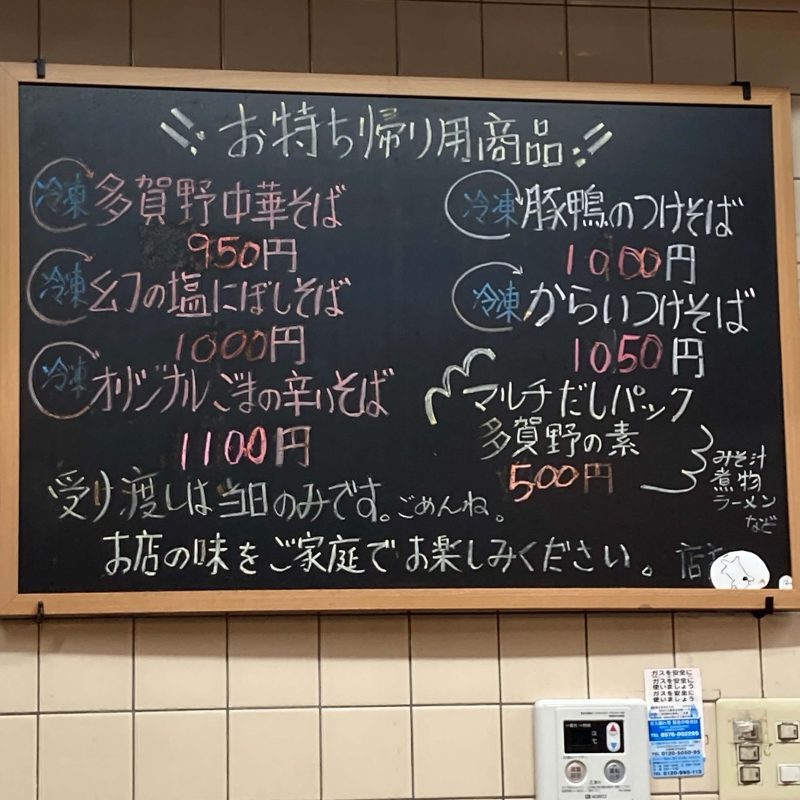 お持ち帰り用商品!!
冷凍 多賀野中華そば
950円
冷凍 幻の塩にぼしそば
1000円
冷凍 オリジナルごまの辛いそば
1100円
冷凍 豚鴨のつけそば
1000円
冷凍 からいつけそば
1050円
マルチだしパック
多賀野の素
500円
みそ汁
煮物
ラーメン
など
受け渡しは当日のみです。ごめんね。
お店の味をご家庭でお楽しみください。店
ガスを安全に
使いましょう
TEL 0570-002299